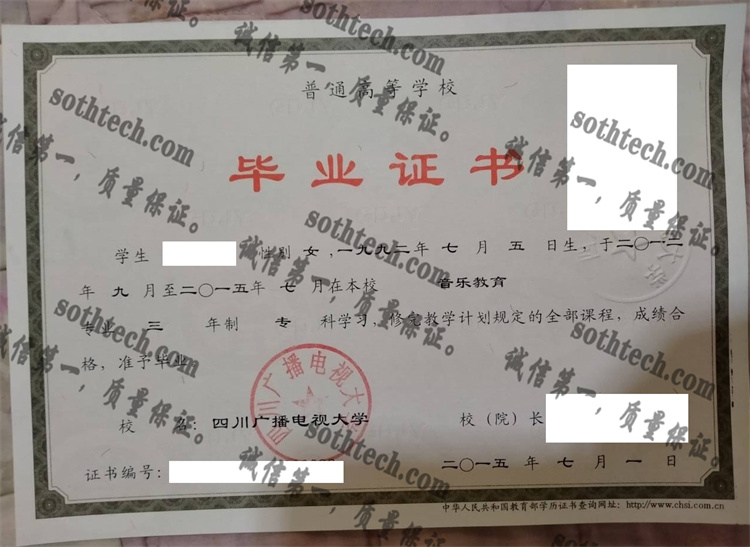 普通高等学校
毕业证书
学生 性别 女,一九九二年 七 月 五 日生,于二〇一二
年 九 月至二〇一五年 七 月在本校 音乐教育
专业 三 年制 专 科学习,修完教学计划规定的全部课程,成绩合
格,准予毕业。
四川广播电视大学
校 名:四川广播电视大学 校(院)长
证书编号: 二〇一五 年 七 月 一 日
中华人民共和国教育部学历证书查询网址:http://www.chsi.com.cn
sothtech.com
诚信第一,质量保证。
sothtech.com
诚信第一,质量保证。
sothtech.com
诚信第一,质量保证。
sothtech.com
诚信第一,质量保证。
sothtech.com
诚信第一,质量保证。
sothtech.com
诚信第一,质量保证。